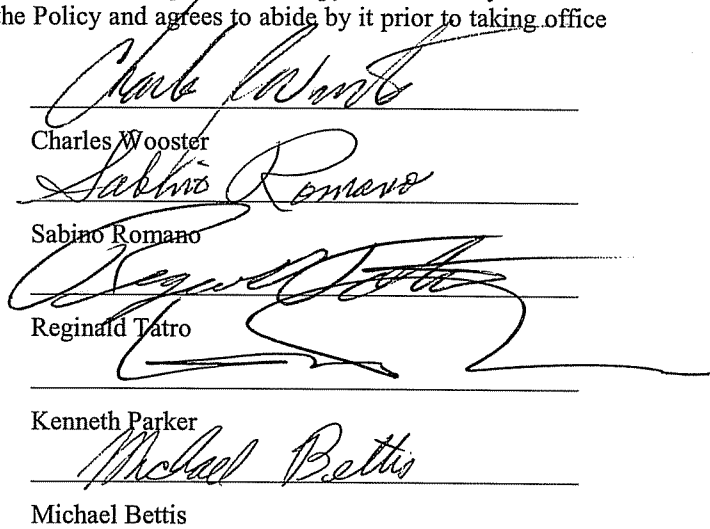 the Policy and agrees to abide by it prior to taking office
Charles Wooster
Sabino Romano
Sabino Romano
Reginald Tatro
Kenneth Parker
Michael Bettis
Michael Bettis